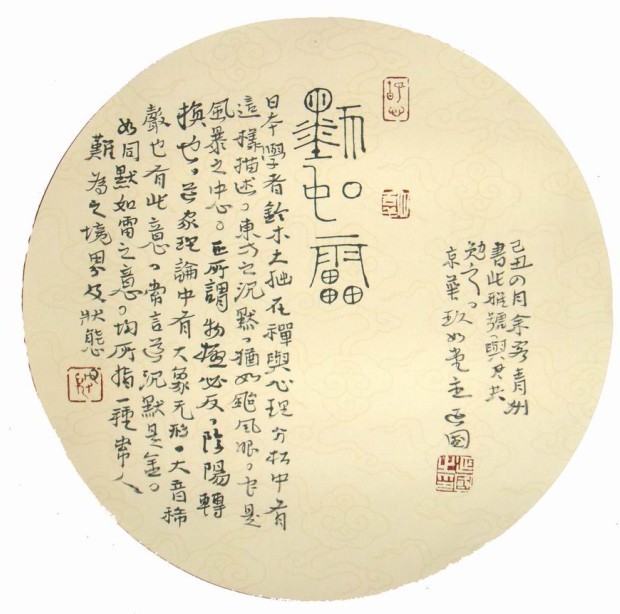 默如雷
日本學者鈴木大拙在禪與心理分析中有
這樣描述。東方之沉默。猶如颱風眼。它是
風暴之中心。正所謂物極必反。陰陽轉
換也。道家理論中有大象无形。大音稀
聲也有此意。常言道沉默是金。
如同默如雷之意。均所指一種常人
難為之境界及狀態
己丑四月余客青州
書此雅號與君共
勉之。
京華玖如堂主正國